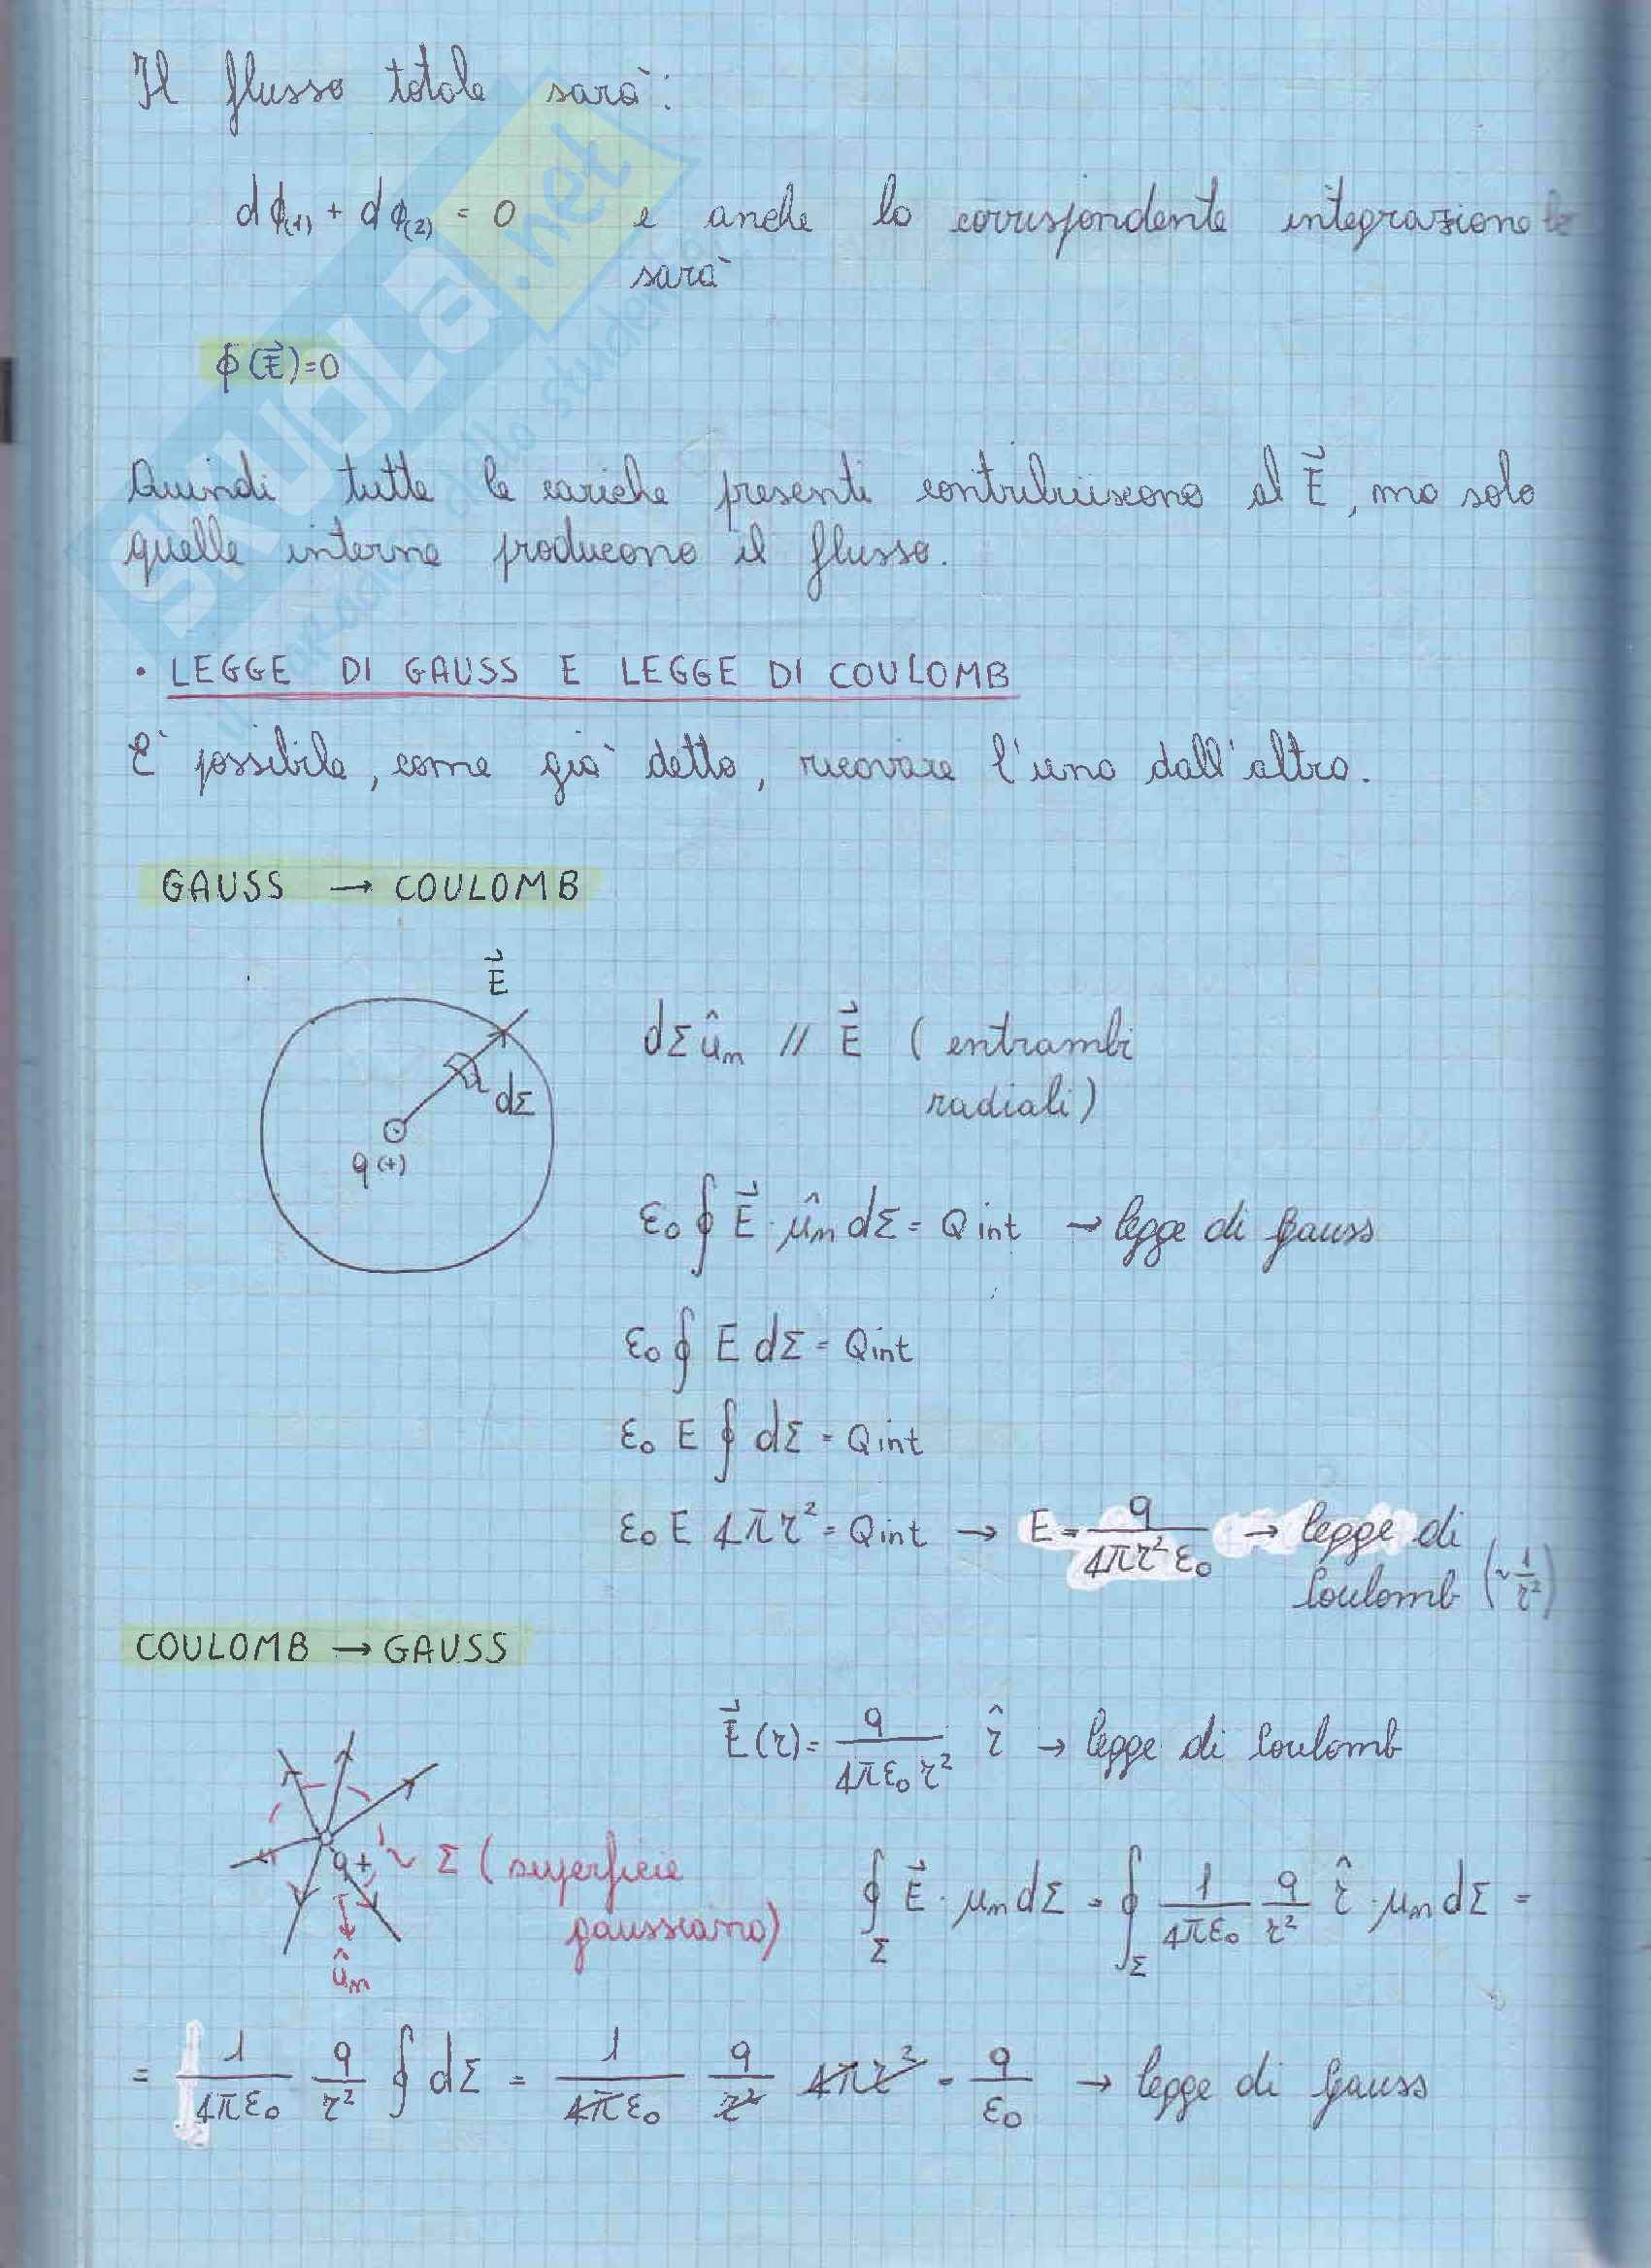 Il flusso totale sarà:
dϕ(1) + dϕ(2) = 0 e anche la corrispondente integrazione
sarà
ϕ(E⃗)=0
Quindi tutte le cariche presenti contribuiscono al E⃗, ma solo
quelle interne producono il flusso.
• LEGGE DI GAUSS E LEGGE DI COULOMB
E' possibile, come già detto, ricavare l'uno dall'altro.
GAUSS → COULOMB
E⃗
dΣ
q(+)
dΣ û_n // E⃗ (entrambi
radiali)
ε₀ ∮ E⃗ · û_n dΣ = Qint → legge di Gauss
ε₀ ∮ E dΣ = Qint
ε₀ E ∮ dΣ = Qint
ε₀ E 4πr² = Qint → E = q/(4πr²ε₀) → legge di
Coulomb (~1/r²)
COULOMB → GAUSS
E⃗(r) = q/(4πε₀r²) r̂ → legge di Coulomb
q+ ~ Σ (superficie
gaussiana)
û_n
∮_Σ E⃗ · u_n dΣ = ∮_Σ 1/(4πε₀) q/r² r̂ · u_n dΣ =
= 1/(4πε₀) q/r² ∮ dΣ = 1/(4πε₀) q/r² 4πr² = q/ε₀ → legge di Gauss
SKUOLa.net